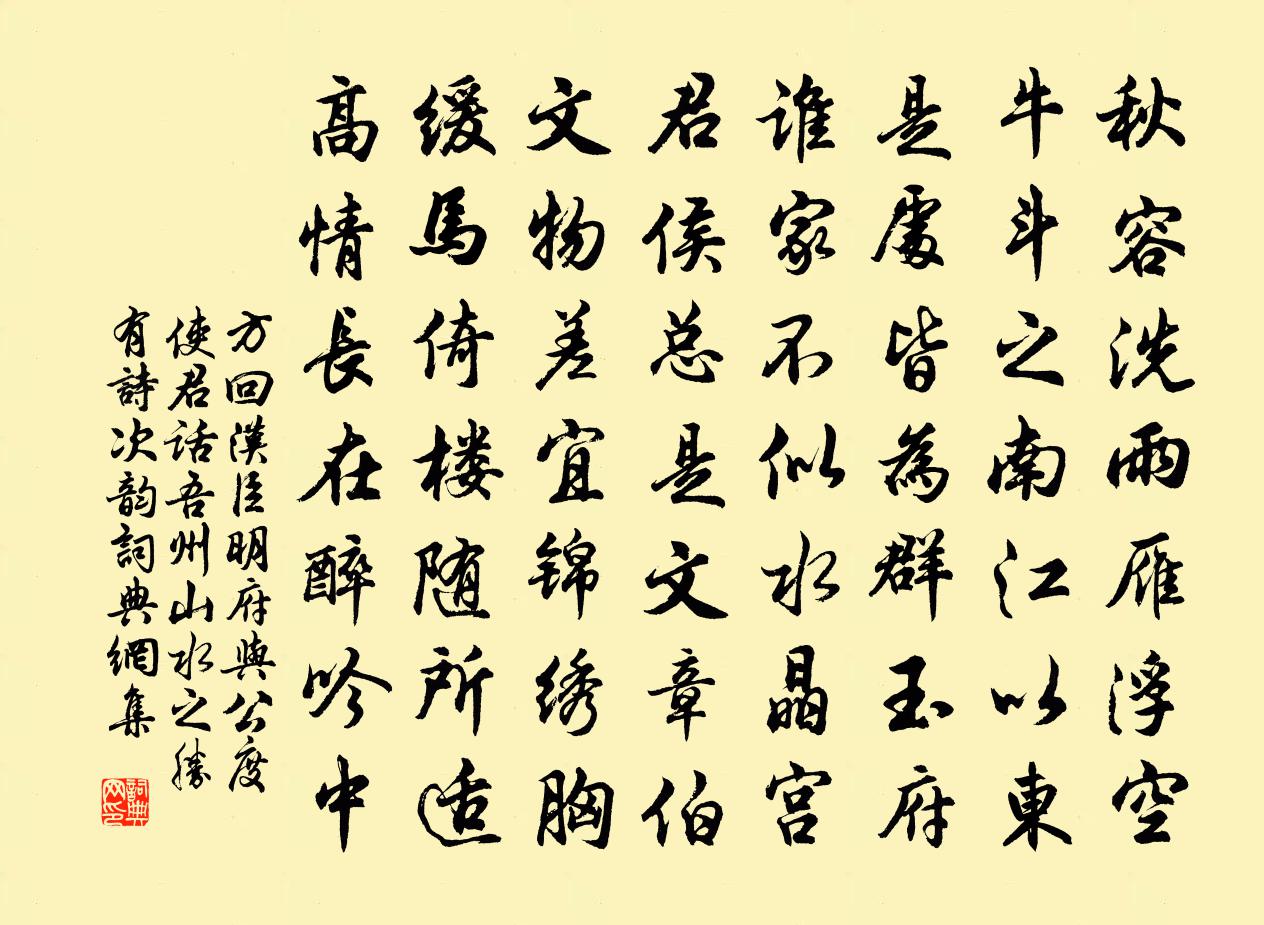 秋容洗雨雁浮空
牛斗之南江以東
是處皆為群玉府
谁家不似水晶宫
君侯总是文章伯
文物差宜锦绣胸
缓馬倚楼随所适
高情長在醉吟中
方回漢臣明府與公度
使君話吾州山水之勝
有詩次韵詞典網集
詞典网印